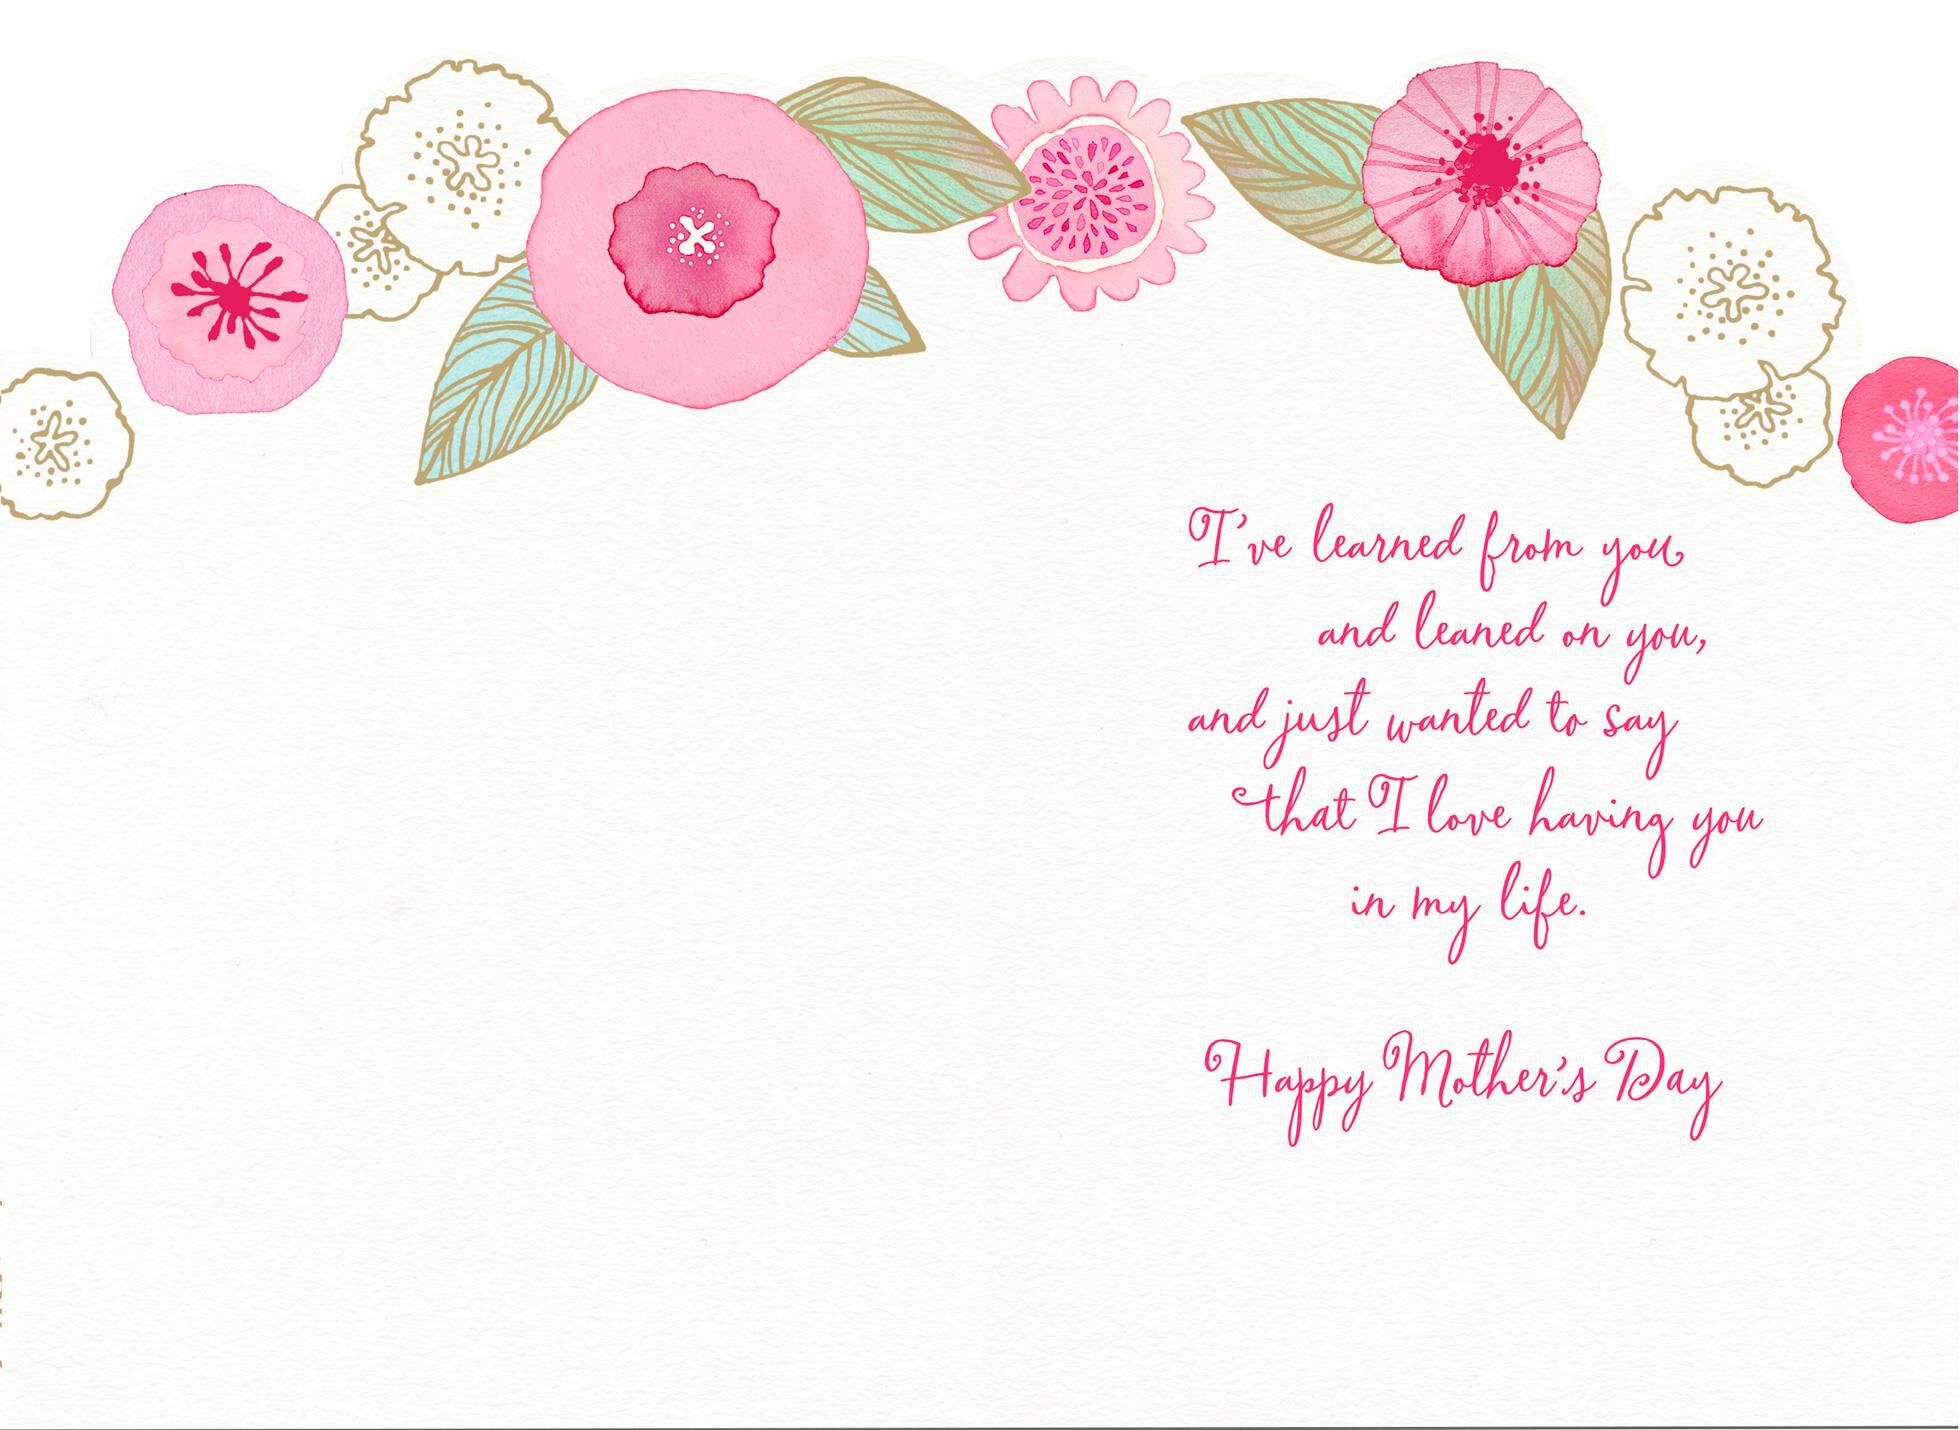 I've learned from you
and leaned on you,
and just wanted to say
that I love having you
in my life.
Happy Mother's Day